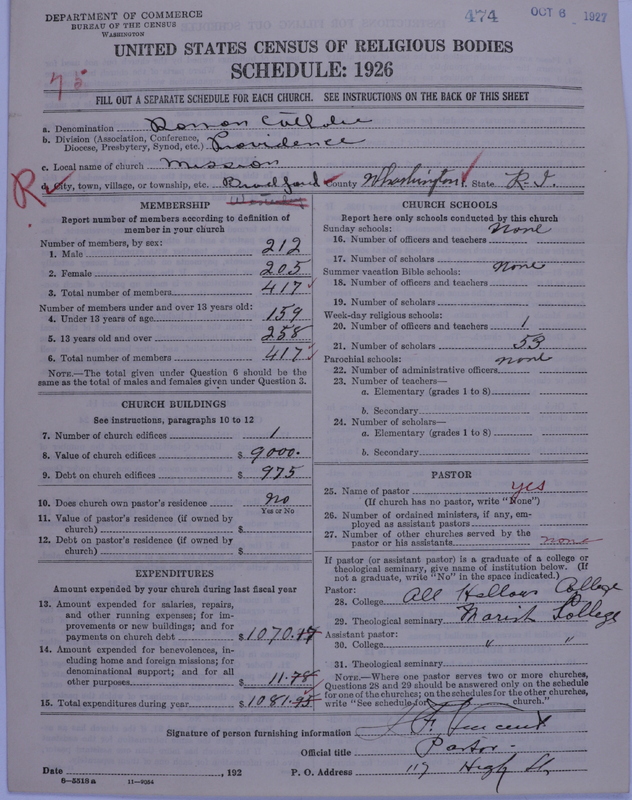 DEPARTMENT OF COMMERCE
BUREAU OF THE CENSUS
WASHINGTON
474 OCT 6 1927
UNITED STATES CENSUS OF RELIGIOUS BODIES
SCHEDULE: 1926
75
FILL OUT A SEPARATE SCHEDULE FOR EACH CHURCH. SEE INSTRUCTIONS ON THE BACK OF THIS SHEET
a. Denomination Roman Catholic
b. Division (Association, Conference,
Diocese, Presbytery, Synod, etc.) Providence
c. Local name of church Mission
d. City, town, village, or township, etc. Bradford County Washington State R.I.
MEMBERSHIP
Report number of members according to definition of
member in your church
Number of members, by sex:
1. Male 212
2. Female 205
3. Total number of members 417
Number of members under and over 13 years old:
4. Under 13 years of age 159
5. 13 years old and over 258
6. Total number of members 417
NOTE.—The total given under Question 6 should be the
same as the total of males and females given under Question 3.
CHURCH BUILDINGS
See instructions, paragraphs 10 to 12
7. Number of church edifices 1
8. Value of church edifices $ 9000.
9. Debt on church edifices $ 975
10. Does church own pastor's residence no
Yes or No
11. Value of pastor's residence (if owned by
church) $
12. Debt on pastor's residence (if owned by
church) $
EXPENDITURES
Amount expended by your church during last fiscal year
13. Amount expended for salaries, repairs,
and other running expenses; for im-
provements or new buildings; and for
payments on church debt $ 1070.17
14. Amount expended for benevolences, in-
cluding home and foreign missions; for
denominational support; and for all
other purposes $ 11.78
15. Total expenditures during year $ 1081.95
CHURCH SCHOOLS
Report here only schools conducted by this church
Sunday schools: None
16. Number of officers and teachers
17. Number of scholars
Summer vacation Bible schools: None
18. Number of officers and teachers
19. Number of scholars
Week-day religious schools:
20. Number of officers and teachers 1
21. Number of scholars 53
Parochial schools: none
22. Number of administrative officers
23. Number of teachers—
a. Elementary (grades 1 to 8)
b. Secondary
24. Number of scholars—
a. Elementary (grades 1 to 8)
b. Secondary
PASTOR
25. Name of pastor yes
(If church has no pastor, write "None")
26. Number of ordained ministers, if any, em-
ployed as assistant pastors
27. Number of other churches served by the
pastor or his assistants none
If pastor (or assistant pastor) is a graduate of a college or
theological seminary, give name of institution below. (If
not a graduate, write "No" in the space indicated.)
Pastor:
28. College All Hallows College
29. Theological seminary Marist College
Assistant pastor:
30. College " "
31. Theological seminary
NOTE.—Where one pastor serves two or more churches,
Questions 28 and 29 should be answered only on the schedule
for one of the churches; on the schedules for the other churches,
write "See schedule for church."
Signature of person furnishing information F. Vincent
Official title Pastor
Date , 192 P. O. Address 117 High St.
6-5518a 11-9064